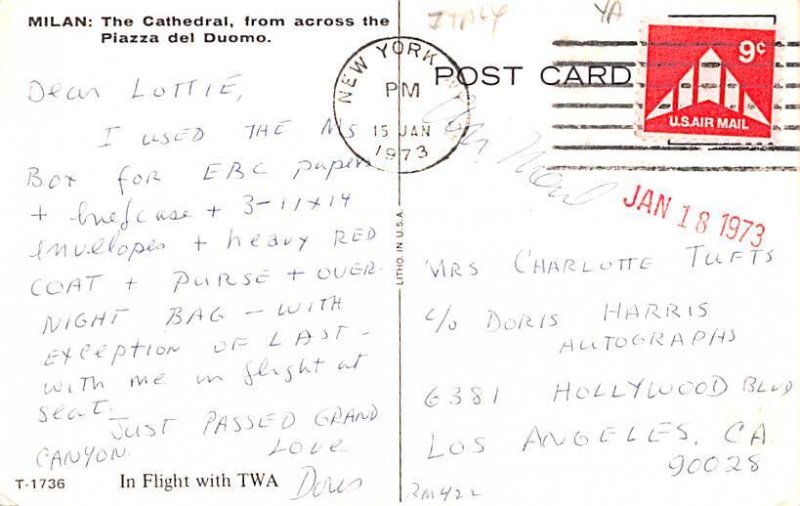 MILAN: The Cathedral, from across the
Piazza del Duomo.
Dear LOTTIE,
I USED THE MS
BOX FOR EBC papers
+ briefcase + 3-11x14
envellopes + heavy RED
COAT + PURSE + OVER-
NIGHT BAG - WITH
EXCEPTION OF LAST -
with me in flight at
seat.
JUST PASSED GRAND
CANYON.
LOVE
Doris
T-1736
In Flight with TWA
LITHO. IN U.S.A.
ITALY
YA
POST CARD
NEW YORK, NY
PM
15 JAN
1973
9¢
U.S. AIR MAIL
JAN 18 1973
MRS CHARLOTTE TUFTS
c/o DORIS HARRIS
AUTOGRAPHS
6381 HOLLYWOOD BLVD
LOS ANGELES, CA
90028